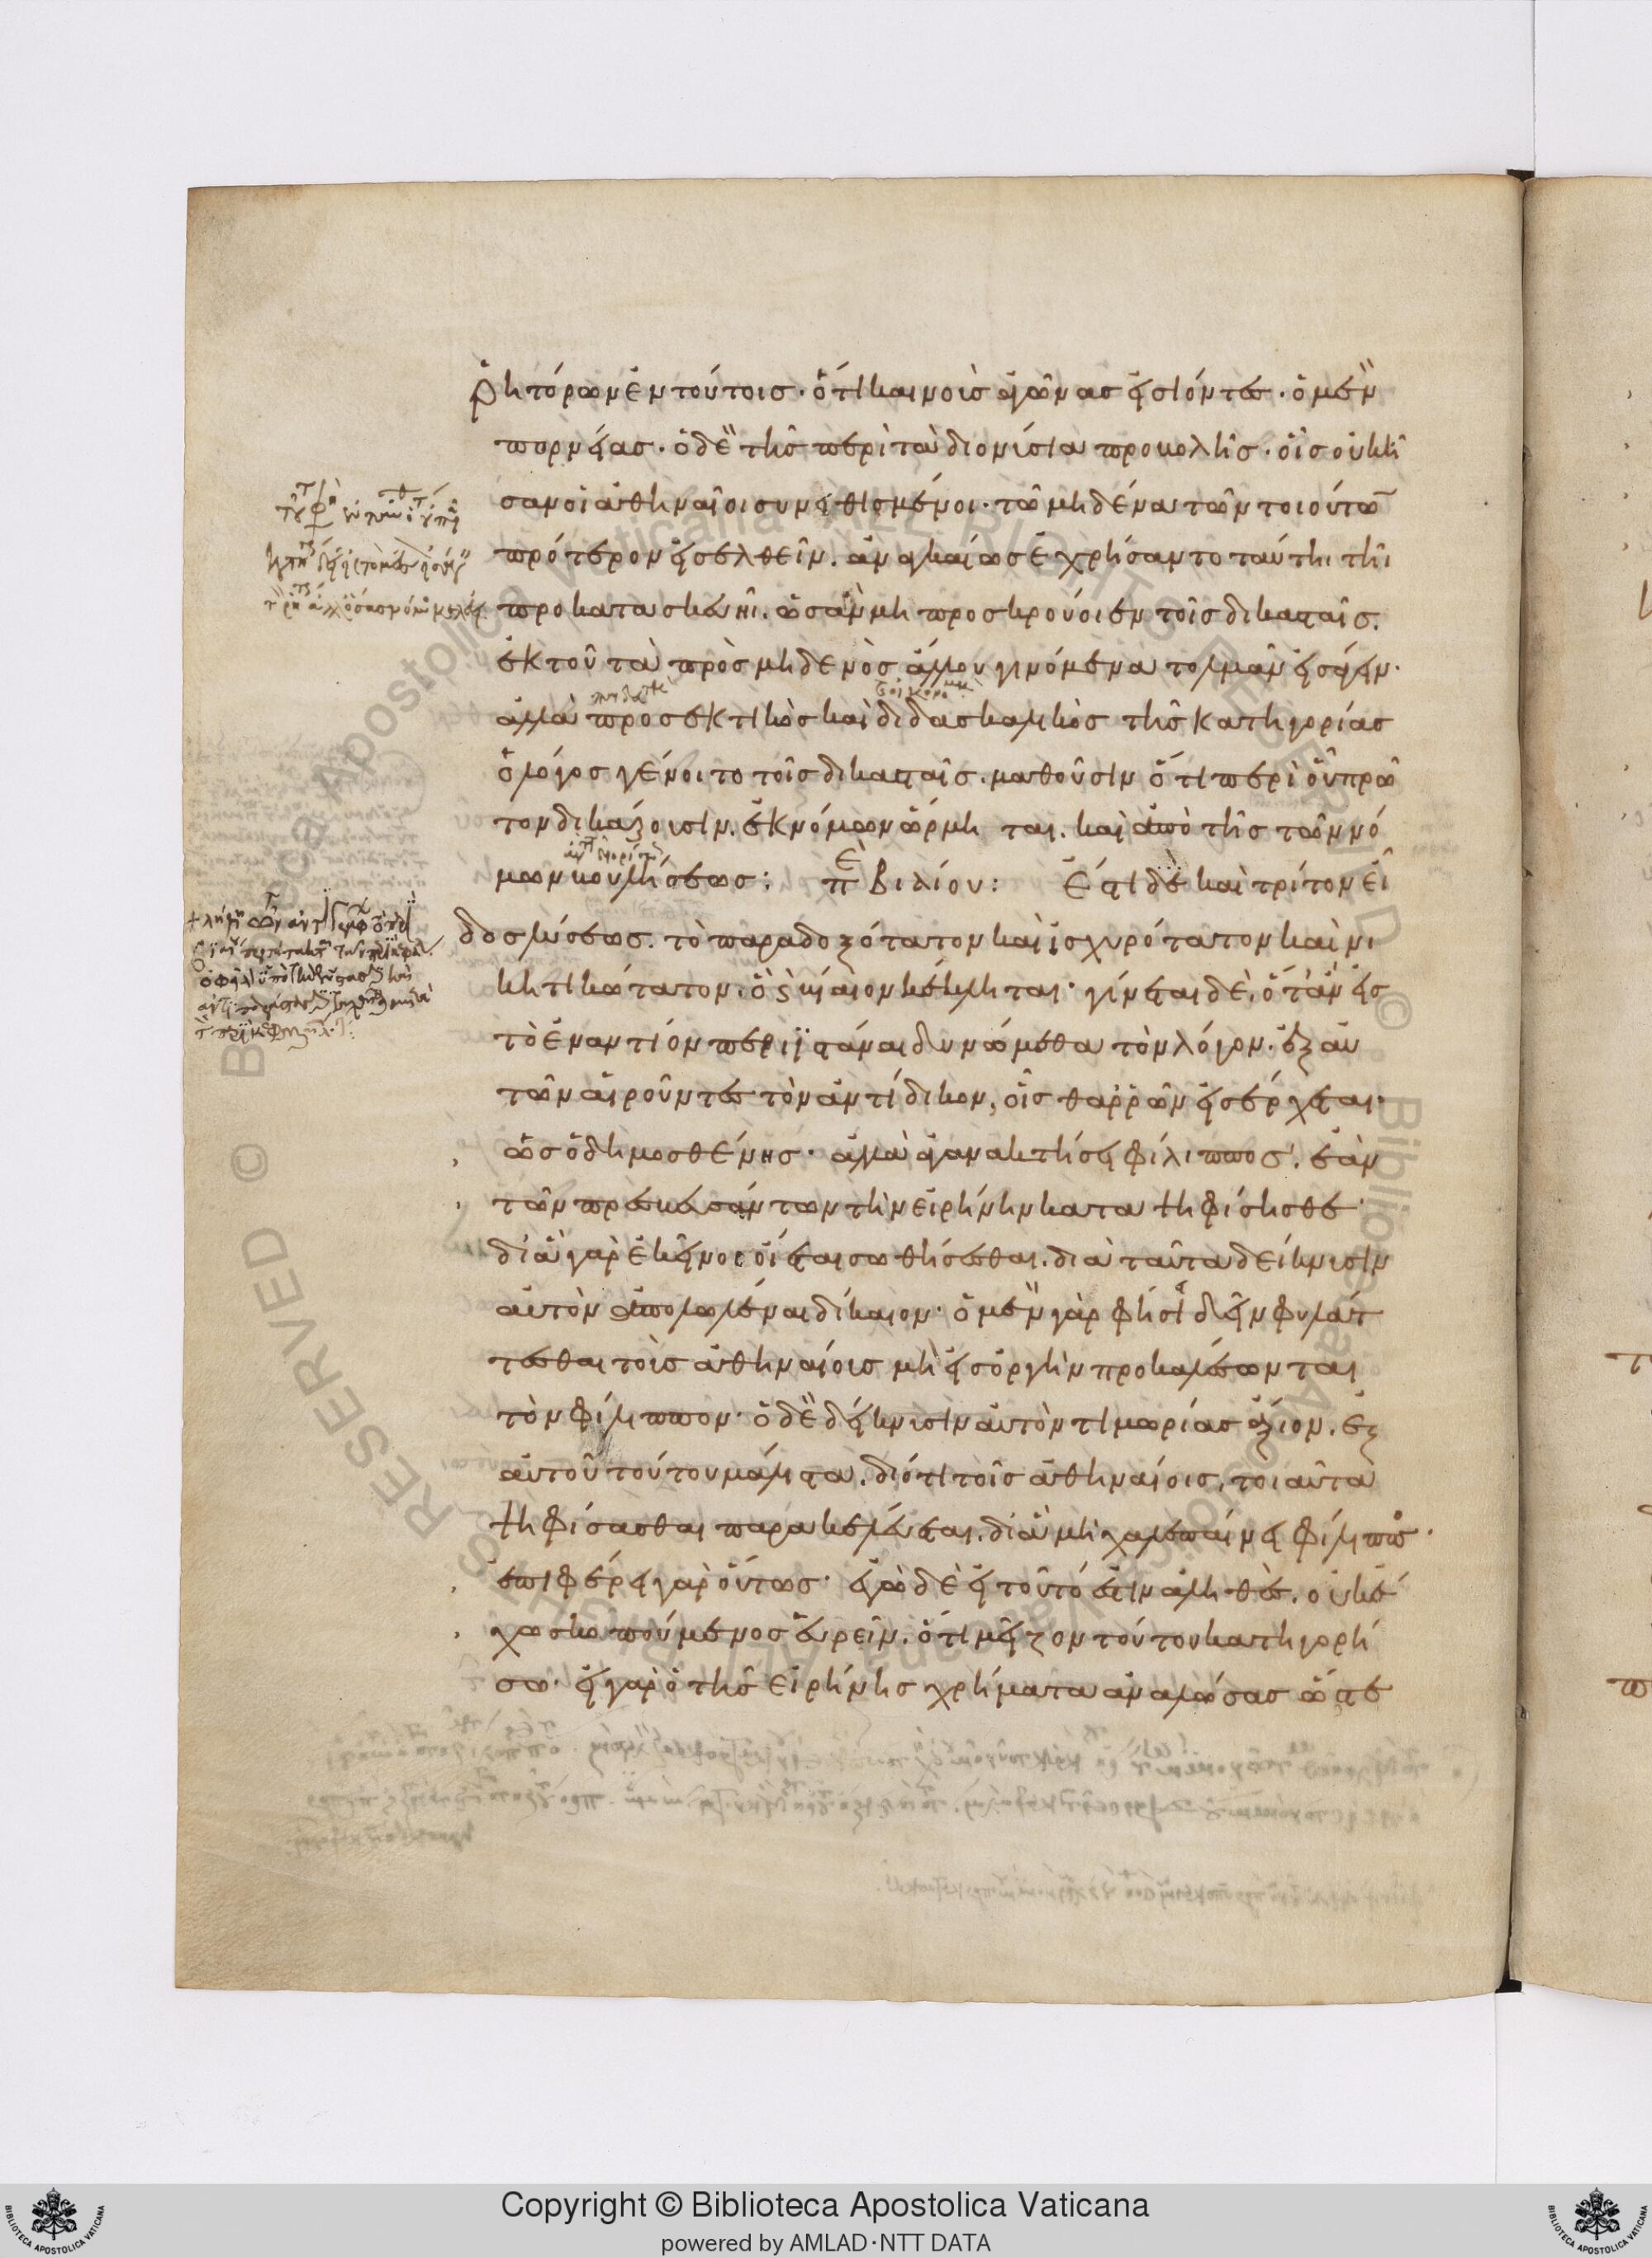 ῥητόρων ἐν τούτοις· ὅτι καινοὺς ἀγῶνας εἰσιόντες· ὁ μὲν
πορνείας· ὁ δὲ τῆς περὶ τὰ διονύσια προβολῆς· οἷς οὐκ ἦ
σαν οἱ ἀθηναῖοι συνειθισμένοι· τῶ μηδένα τῶν τοιούτων
πρότερον εἰσελθεῖν. ἀναγκαίως ἐχρήσαντο ταύτηι τῆι
προκατασκευῆι. ὡς ἂν μὴ προσκρούοιεν τοῖς δικασταῖς.
ἐκ τοῦ τὰ πρὸς μηδενὸς ἄλλου γινόμενα τολμᾶν εἰσάγειν·
ἀλλὰ προσεκτικὸς καὶ διδασκαλικὸς τῆς κατηγορίας
ὁ λόγος γένοιτο τοῖς δικασταῖς. μαθοῦσιν ὅτι περὶ οὗ πρῶ
τον δικάζουσιν. ἐκ νόμων ὥρμηται. καὶ ἀπὸ τῆς τῶν νό
μων βουλήσεως: ε π βιαίου: Ἔστι δὲ καὶ τρίτον εἶ
δος λύσεως. τὸ παραδοξότατον καὶ ἰσχυρότατον καὶ νι
κητικώτατον· ὃ βίαιον κέκληται· γίνεται δὲ, ὅταν εἰς
τὸ ἐναντίον περιϊστάναι δυνώμεθα τὸν λόγον· ἐξ αὐ
τῶν αἱροῦντες τὸν ἀντίδικον, οἷς θαρρῶν εἰσέρχεται·
ὡς ὁ δημοσθένης· ἀλλὰ ἀγανακτήσει φίλιππος. ἐὰν
τῶν πρεσβευσάντων τὴν εἰρήνην καταψηφίσησθε·
δι' ἃ γὰρ ἐκεῖνος οἴεται σωθήσεσθαι. διὰ ταῦτα δείκνυσιν
αὐτὸν ἀπολωλέναι δίκαιον· ὁ μὲν γὰρ φησὶ δεῖν φυλάτ
τεσθαι τοῖς ἀθηναίοις μὴ εἰς ὀργὴν προκαλέσωνται
τὸν φίλιππον· ὁ δὲ δείκνυσιν αὐτὸν τιμωρίας ἄξιον. ἐξ
αὐτοῦ τούτου μάλιστα. διότι τοῖς ἀθηναίοις, τοιαῦτα
ψηφίσασθαι παρακελεύεται. δι' ἃ μὴ χαλεπαίνει φίλιππος·
ἐπιφέρει γὰρ οὕτως· ἐγὼ δὲ εἰ τοῦτό ἐστιν ἀληθὲς. οὐκ ἔ
χω σκοπούμενος εὑρεῖν. ὅτι μεῖζον τούτου κατηγορή
σω· εἰ γὰρ ὁ τῆς εἰρήνης χρήματα ἀναλώσας ὥστε
Copyright © Biblioteca Apostolica Vaticana
powered by AMLAD·NTT DATA